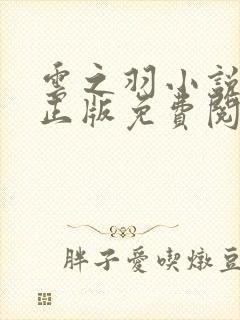 雲之羽小說
正版免費閱
胖子愛喫燉豆